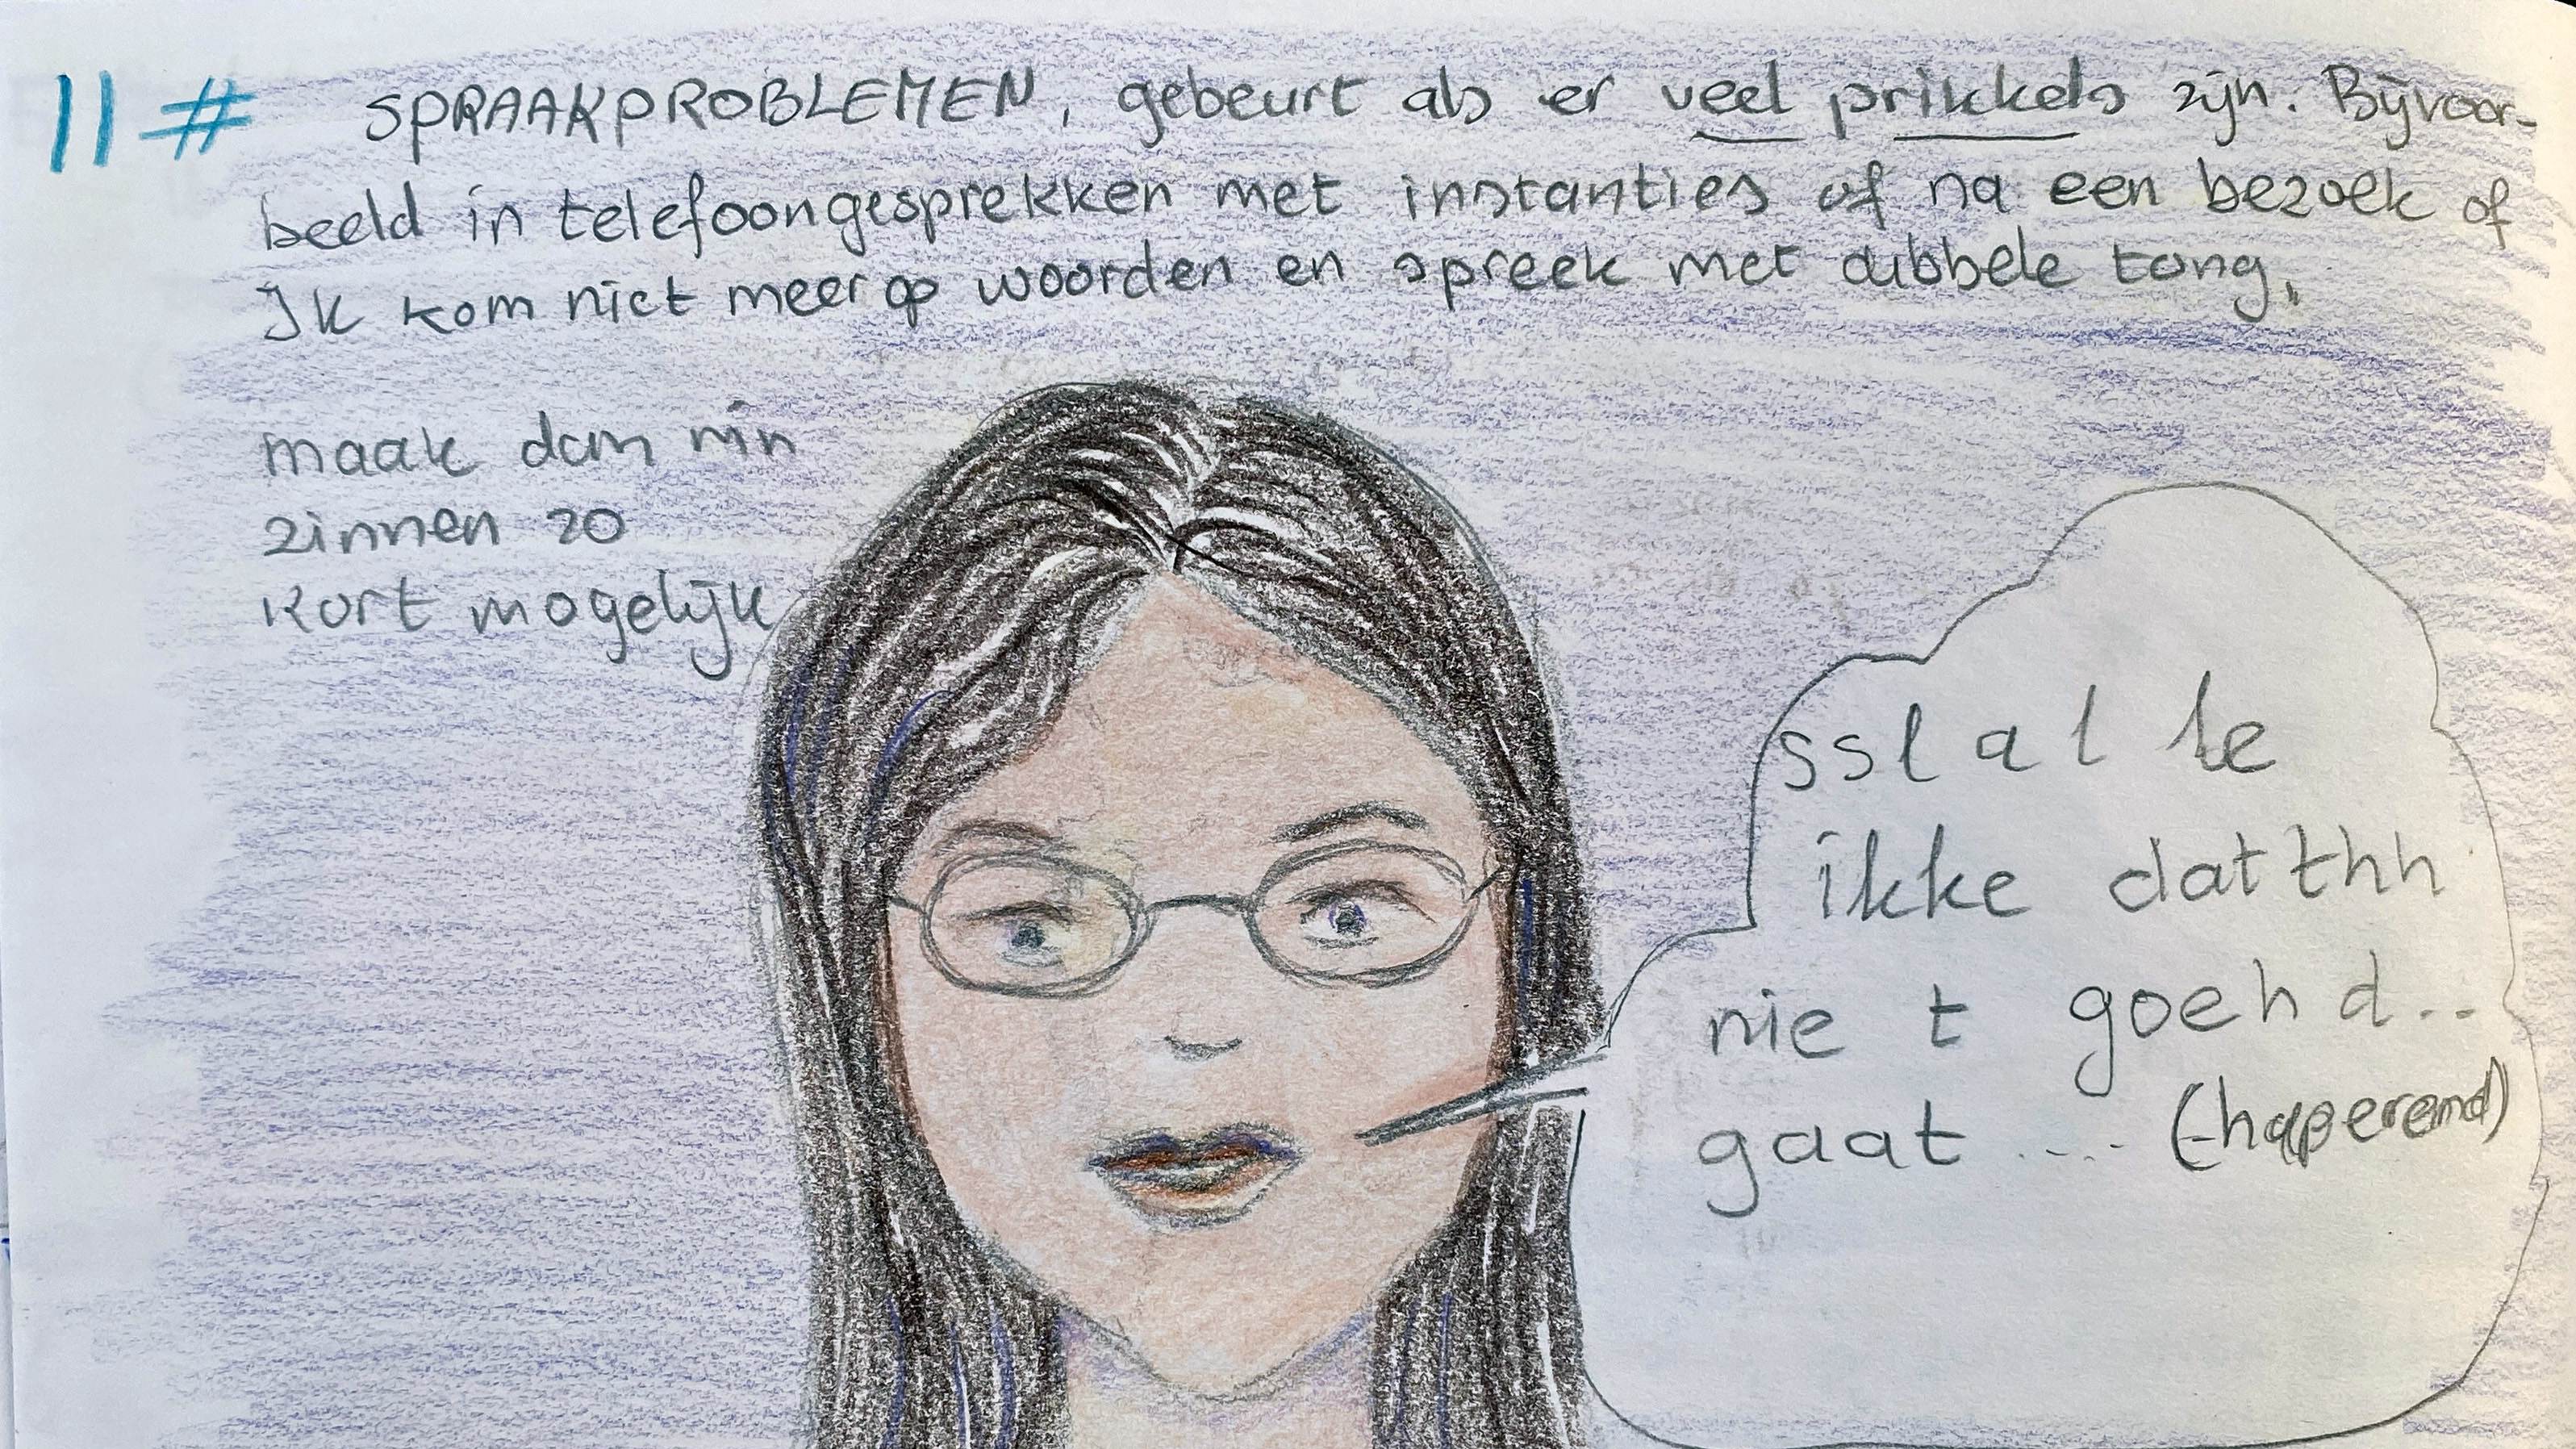 11# SPRAAKPROBLEMEN, gebeurt als er veel prikkels zijn. Bijvoor-
beeld in telefoongesprekken met instanties of na een bezoek of
Ik kom niet meer op woorden en spreek met dubbele tong.
maak dan mijn
zinnen zo
kort mogelijk
ssl a l le
ikke dat thh
nie t goeh d..
gaat .... (-haperend)